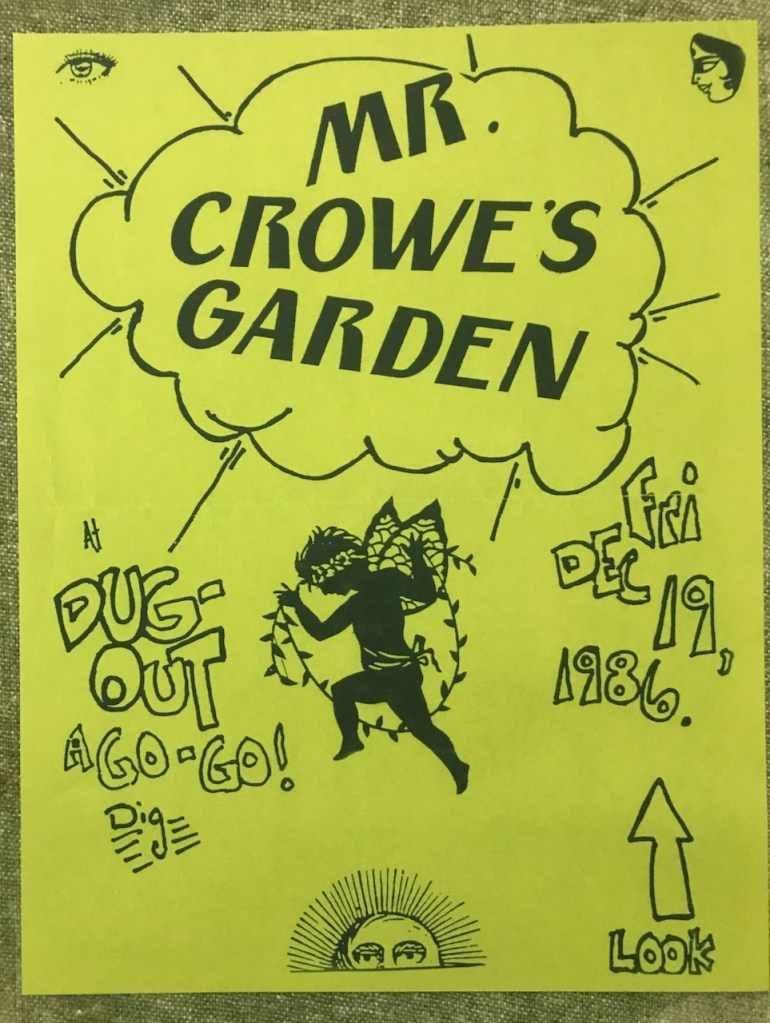 MR.
CROWE'S
GARDEN
At
DUG-
OUT
A GO-GO!
Dig
Fri
DEC 19,
1986.
LOOK